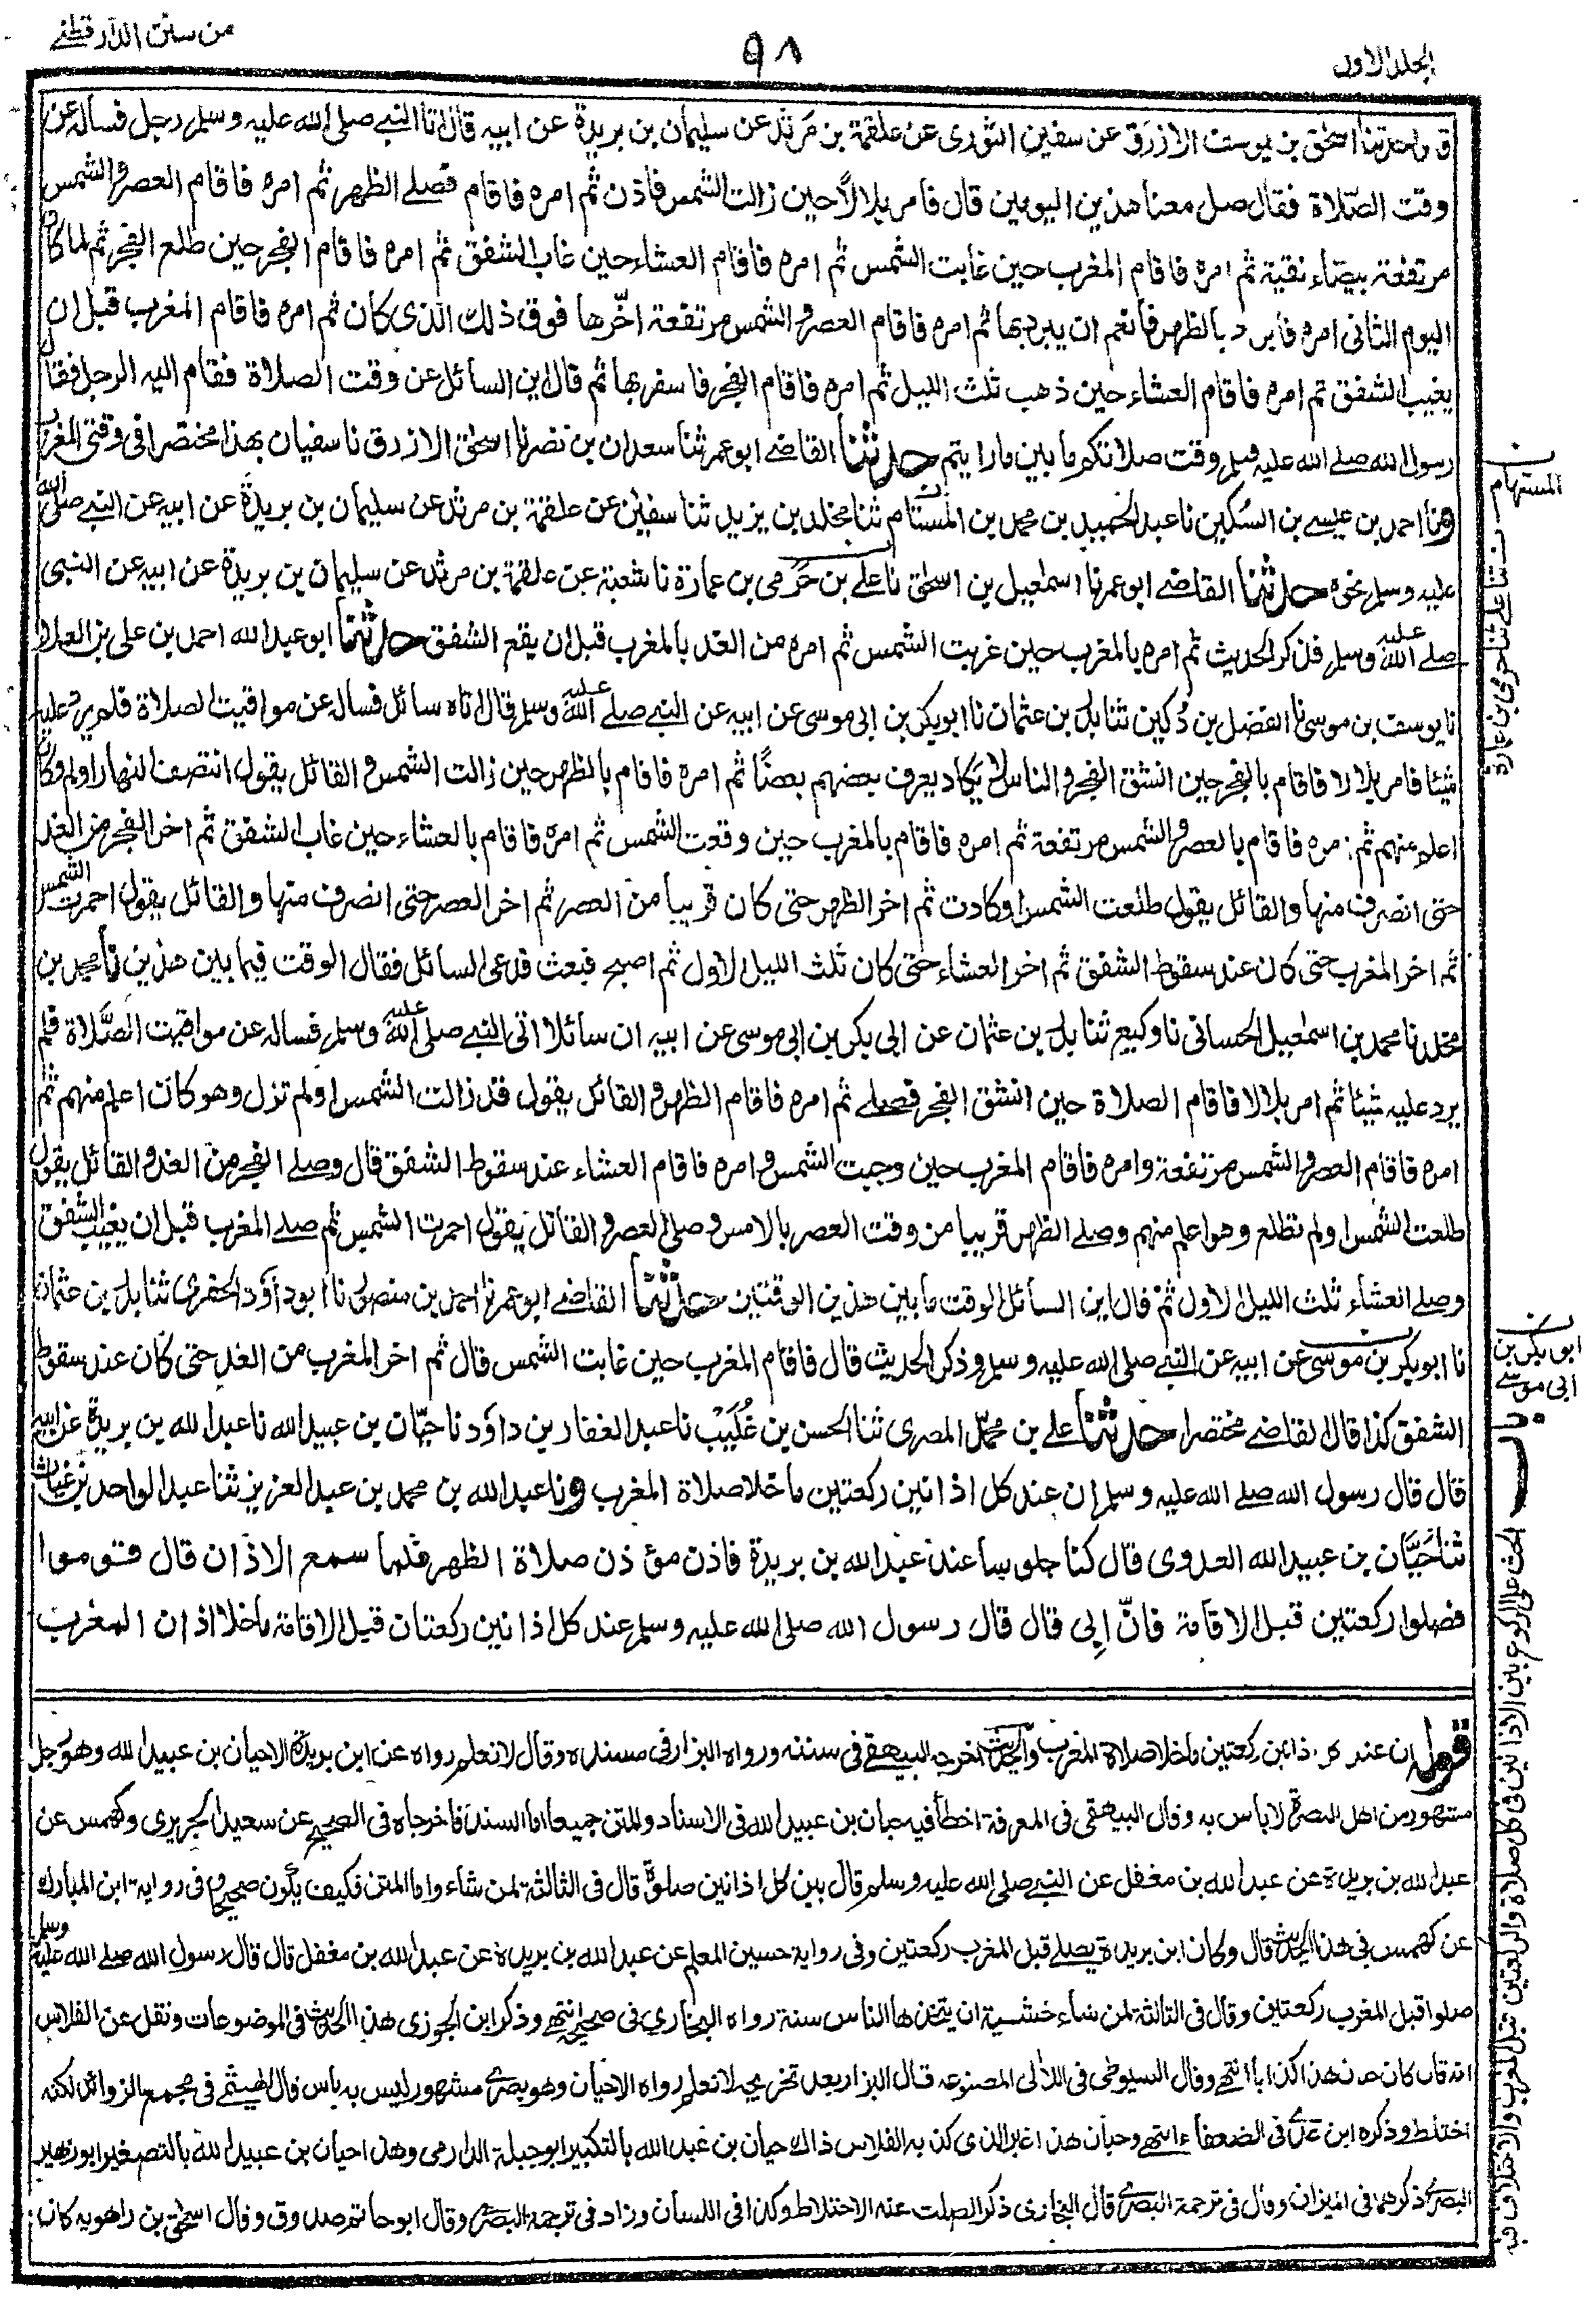 الجلد الاول
٩٨
من سنن الدارقطنے
اسحٰق بن يوسف الازرق عن سفين الثوری عن علقمة بن مرثد عن سليمان بن بريدة عن ابيه قال اتا النبے صلى الله عليه وسلم رجل فساله عن
وقت الصّلاة فقال صل معنا هذين اليومين قال فأمر بلالاً حين زالت الشمس فاذن ثم امره فاقام فصلے الظهر ثم امره فاقام العصر والشمس
مرتفعة بيضاء نقية ثم امره فاقام المغرب حين غابت الشمس ثم امره فاقام العشاء حين غاب الشفق ثم امره فاقام الفجر حين طلع الفجر ثم لما كان
اليوم الثانی امره فابرد بالظهر فانعم ان يبرد بها ثم امره فاقام العصر والشمس مرتفعة اخّرها فوق ذلك الذی كان ثم امره فاقام المغرب قبل ان
يغيب الشفق ثم امره فاقام العشاء حين ذهب ثلث الليل ثم امره فاقام الفجر فاسفر بها ثم قال اين السائل عن وقت الصلاة فقام اليه الرجل فقال
رسول الله صلے الله عليه وسلم وقت صلاتكم ما بين ما رايتم حدثنا القاضے ابو عمر ثنا سعدان بن نصر نا اسحٰق الازرق نا سفيان بهذا مختصرا فی وقتی المغرب
ونا احمد بن عيسے بن السكين نا عبد الحميد بن محمد بن المستام ثنا مخلد بن يزيد ثنا سفين عن علقمة بن مرثد عن سليمان بن بريدة عن ابيه عن النبے صلى الله
عليه وسلم نحوه حدثنا القاضے ابو عمر نا اسمعيل بن اسحٰق نا علے بن حرمی بن عمارة نا شعبة عن علقمة بن مرثد عن سليمان بن بريدة عن ابيه عن النبی
صلے الله عليه وسلم فذكر الحديث ثم امره بالمغرب حين غربت الشمس ثم امره من الغد بالمغرب قبل ان يقع الشفق حدثنا ابو عبد الله احمد بن علی بن العلاء
نا يوسف بن موسى نا الفضل بن دُكين ثنا بدر بن عثمان نا ابو بكر بن ابی موسی عن ابيه عن النبے صلے الله عليه وسلم قال اتاه سائل فساله عن مواقيت الصلاة فلم يرد عليه
شيئا فامر بلالا فاقام بالفجر حين انشق الفجر والناس لا يكاد يعرف بعضهم بعضًا ثم امره فاقام بالظهر حين زالت الشمس والقائل يقول انتصف النهار او لم وكان
اعلم منهم ثم امره فاقام بالعصر والشمس مرتفعة ثم امره فاقام بالمغرب حين وقعت الشمس ثم امره فاقام بالعشاء حين غاب الشفق ثم اخر الفجر من الغد
حتى انصرف منها والقائل يقول طلعت الشمس او كادت ثم اخر الظهر حتى كان قريبا من العصر ثم اخر العصر حتى انصرف منها والقائل يقول احمرت الشمس
ثم اخر المغرب حتى كان عند سقوط الشفق ثم اخر العشاء حتى كان ثلث الليل الاول ثم اصبح فبعث فدعی السائل فقال الوقت فيما بين هذين نا محمد بن
مخلد نا محمد بن اسمعيل الحسانی نا وكيع ثنا بدر بن عثمان عن ابی بكر بن ابی موسى عن ابيه ان سائلا اتى النبے صلى الله عليه وسلم فساله عن مواقيت الصَّلاة فلم
يرد عليه شيئا ثم امر بلالا فاقام الصلاة حين انشق الفجر فصلے ثم امره فاقام الظهر والقائل يقول قد زالت الشمس او لم تزل وهو كان اعلم منهم ثم
امره فاقام العصر والشمس مرتفعة وامره فاقام المغرب حين وجبت الشمس وامره فاقام العشاء عند سقوط الشفق قال وصلے الفجر من الغد والقائل يقول
طلعت الشمس او لم تطلع وهو اعلم منهم وصلے الظهر قريبا من وقت العصر بالامس وصلى العصر والقائل يقول احمرت الشمس ثم صلے المغرب قبل ان يغيب الشفق
وصلے العشاء ثلث الليل الاول ثم قال اين السائل الوقت ما بين هذين الوقتين حدثنا القاضے ابو عمر نا احمد بن منصور نا ابو داؤد الحفری ثنا بدر بن عثمان
نا ابو بكر بن موسى عن ابيه عن النبے صلى الله عليه وسلم وذكر الحديث قال فاقام المغرب حين غابت الشمس قال ثم اخر المغرب من الغد حتى كان عند سقوط
الشفق كذا قال القاضے مختصرا حدثنا علے بن محمد المصری ثنا الحسن بن غُلَيْب نا عبد الغفار بن داؤد نا حيّان بن عبيد الله نا عبد الله بن بريدة عن ابيه
قال قال رسول الله صلے الله عليه وسلم ان عند كل اذانين ركعتين ما خلا صلاة المغرب ونا عبد الله بن محمد بن عبد العزيز ثنا عبد الواحد بن غياث
ثنا حَيَّان بن عبيد الله العدوی قال كنا جلوسا عند عبد الله بن بريدة فاذن مؤذن صلاة الظهر فلما سمع الاذان قال قوموا
فصلوا ركعتين قبل الاقامة فانّ ابی قال قال رسول الله صلى الله عليه وسلم عند كل اذانين ركعتان قبل الاقامة ما خلا اذان المغرب
المستهام
ثنا علے ثنا حرمی بن عمارة
ابو بكر بن
ابی موسے
باب
الحث على الركوع بين الاذانين فی كل صلاة والركعتين قبل المغرب والاختلاف فيه
قوله ان عند كل اذانين ركعتين ما خلا صلاة المغرب والحديث اخرجه البيهقے فی سننه ورواه البزار فی مسنده وقال لا نعلم رواه عن ابن بريدة الا حيان بن عبيد الله وهو رجل
مشهور من اهل البصرة لا باس به وقال البيهقی فی المعرفة اخطأ فيه حبان بن عبيد الله فی الاسناد والمتن جميعا اما السند فاخرجاه فی الصحيح عن سعيد الجريری وكهمس عن
عبد الله بن بريدة عن عبد الله بن مغفل عن النبے صلى الله عليه وسلم قال بين كل اذانين صلوة قال فی الثالثة لمن شاء واما المتن فكيف يكون صحيحا وفی رواية ابن المبارك
عن كهمس فی هذا الحديث قال وكان ابن بريدة يصلے قبل المغرب ركعتين وفی رواية حسين المعلم عن عبد الله بن بريدة عن عبد الله بن مغفل قال قال رسول الله صلے الله عليه وسلم
صلوا قبل المغرب ركعتين وقال فی الثالثة لمن شاء خشية ان يتخذها الناس سنة رواه البخاری فی صحيحه انتهے وذكر ابن الجوزی هذا الحديث فی الموضوعات ونقل عن الفلاس
انه قال كان هذا كذابا انتهے وقال السيوطی فی اللآلی المصنوعه قال البزار بعد تخريجه لا نعلم رواه الا حيان وهو بصرے مشهور ليس به باس قال الهيثمے فی مجمع الزوائد لكنه
اختلط وذكره ابن عدے فی الضعفاء انتهے وحيان هذا غير الذی كذبه الفلاس ذاك حيان بن عبد الله بالتكبير ابو جبلة الدارمی وهذا حيان بن عبيد الله بالتصغير ابو زهير
البصرے ذكرهما فی الميزان وقال فی ترجمة البصرے قال البخاری ذكر الصلت عنه الاختلاط وكذا فی اللسان وزاد فی ترجمة البصرے وقال ابو حاتم صدوق وقال اسحٰق بن راهويه كان